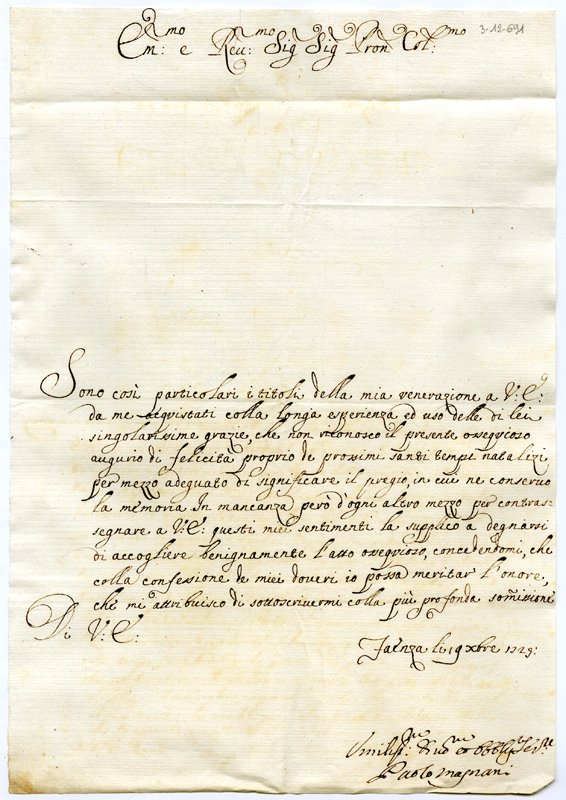 Em:mo e Reu:mo Sig Sig Pron Col:mo
3-12-691
Sono così particolari i titoli della mia venerazione a V: E:
da me acqvistati colla longa esperienza ed uso delle di lei
singolarissime grazie, che non riconosco il presente osseqvioso
augurio di felicità proprio de prossimi santi tempi natalizi
per mezzo adeguato di significare il pregio, in cui ne conservo
la memoria In mancanza però d'ogni altro mezzo per contras=
segnare a V: E: questi miei sentimenti la supplico a degnarsi
di accogliere benignamente l'atto osseqvioso, concedendomi, che
colla confessione de miei doveri io possa meritar l'onore,
che mi attribuisco di sottoscrivermi colla più profonda som̃isione
Di V: E:
Faenza li 19 xbre 1725:
Umiliss:mo Diuo:mo et Obblig:mo Ser:re
Paolo Magnani